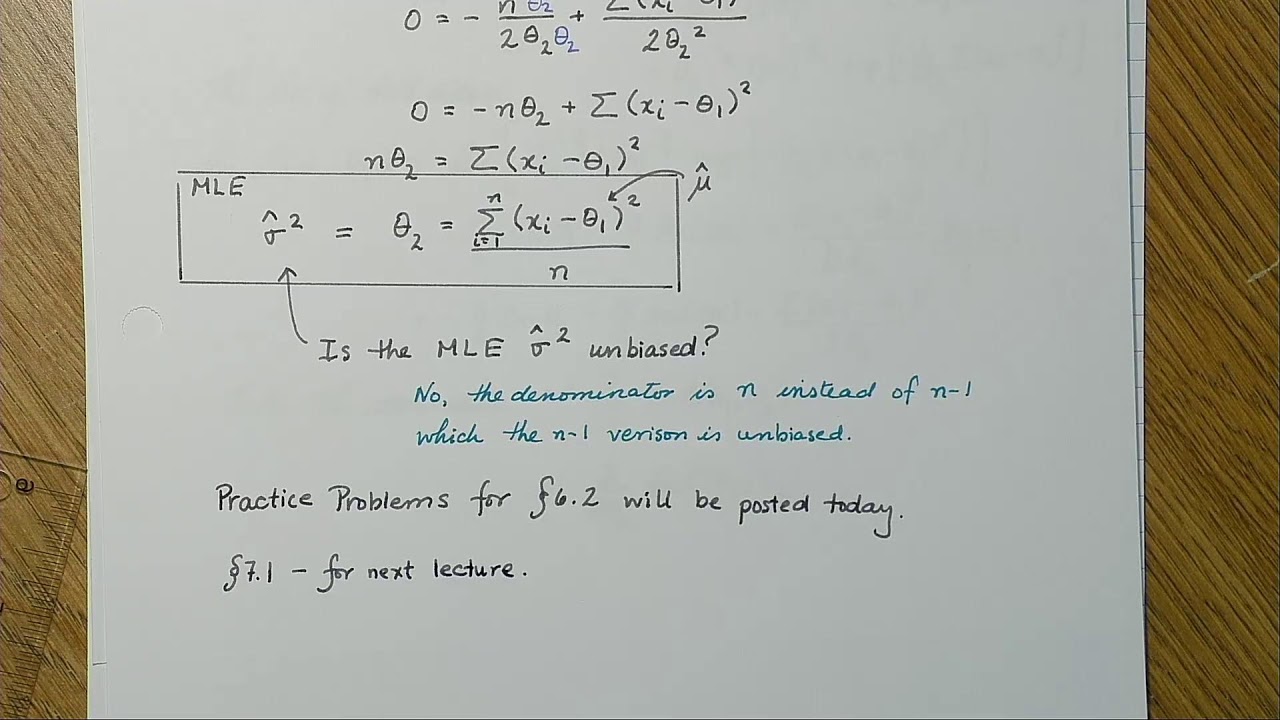 0 = - nθ₂/2θ₂θ₂ + Σ(xᵢ - θ₁)/2θ₂²
0 = -nθ₂ + Σ(xᵢ - θ₁)²
nθ₂ = Σ(xᵢ - θ₁)²
MLE
σ̂² = θ₂ = Σᵢ₌₁ⁿ(xᵢ - θ₁)²/n
μ̂
Is the MLE σ̂² unbiased?
No, the denominator is n instead of n-1
which the n-1 verison is unbiased.
Practice Problems for §6.2 will be posted today.
§7.1 - for next lecture.